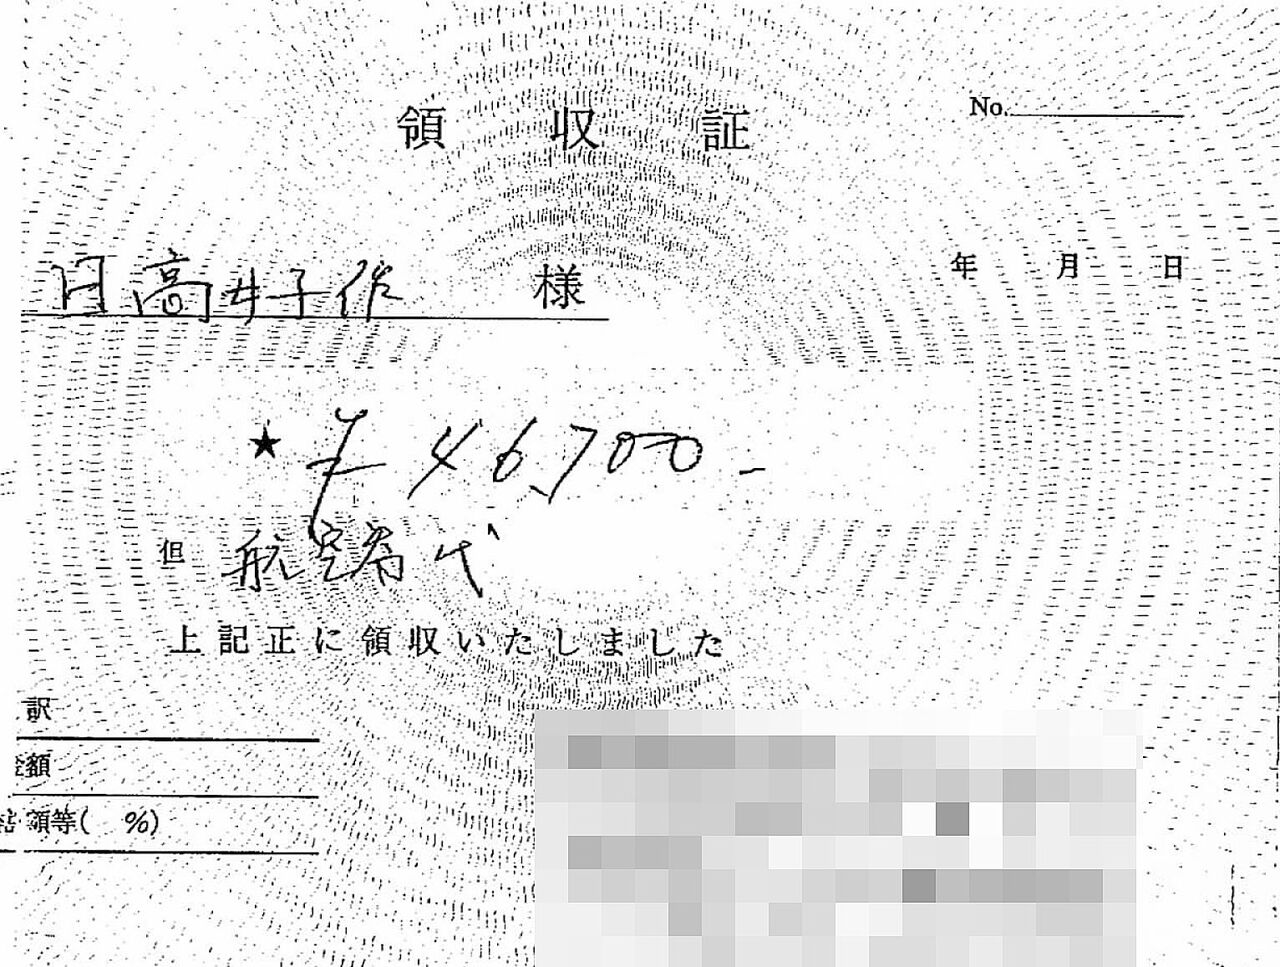 領収証
No.
年 月 日
日高井子作 様
★ ¥46,700-
但 航空券代
上記正に領収いたしました
訳
金額
額等( %)